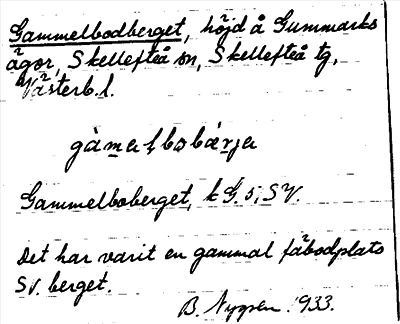 Gammelbodberget, höjd å Gummarks
ägor, Skellefteå sn, Skellefteå tg,
Västerb. l.
Gammelboberget, k G. 5, SV.
Det har varit en gammal fäbodplats
SV. berget.
B. Nygren 1933.